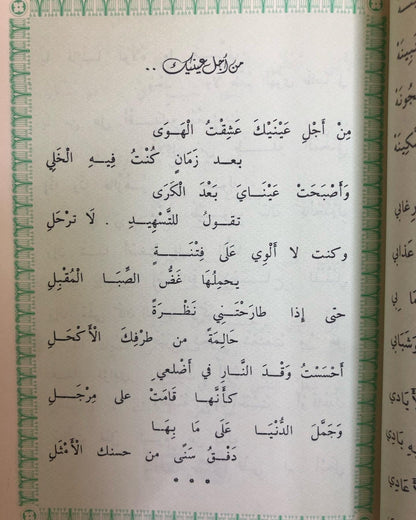 من أجل عينيك ..
مِنْ أَجْلِ عَيْنَيْكَ عَشِقْتُ الْهَوَى
بعد زَمَانٍ كُنْتُ فِيهِ الْخَلِي
وَأَصْبَحَتْ عَيْنَايَ بَعْدَ الْكَرَى
تقولُ للتَّسْهِيدِ . لَا ترْحَلِ
وكنت لا أَلْوِي عَلَى فِتْنَةٍ
يحمِلُهَا غَضُّ الصِّبَا الْمُقْبِلِ
حتى إذا طارَحْتَنِي نَظْرَةً
حَالِمَةً من طرْفِكَ الْأَكْحَلِ
أَحْسَسْتُ وَقْدَ النَّارِ في أَضْلعي
كأَنَّها قَامَتْ على مِرْجَلِ
وَجَمَّلَ الدُّنْيَا عَلَى مَا بِهَا
دَفْقُ سَنًى من حسنك الْأَمْثَلِ